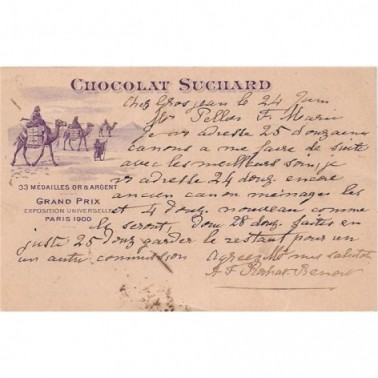 CHOCOLAT SUCHARD
Chez Grosjean le 24 Juin
Mr Pellas F. Marin
Je vs adresse 25 douzaines
canons a me faire de suite
avec les meilleurs soins, je
vs adresse 24 douz encre
ancien canon ménages les
33 MÉDAILLES OR & ARGENT
GRAND PRIX
EXPOSITION UNIVERSELLE
PARIS 1900
et 4 douz nouveau comme
le seront donc 28 douz faites en
juste 25 douz garder le restant pour un
un autre commission agreez Mr mes salutations